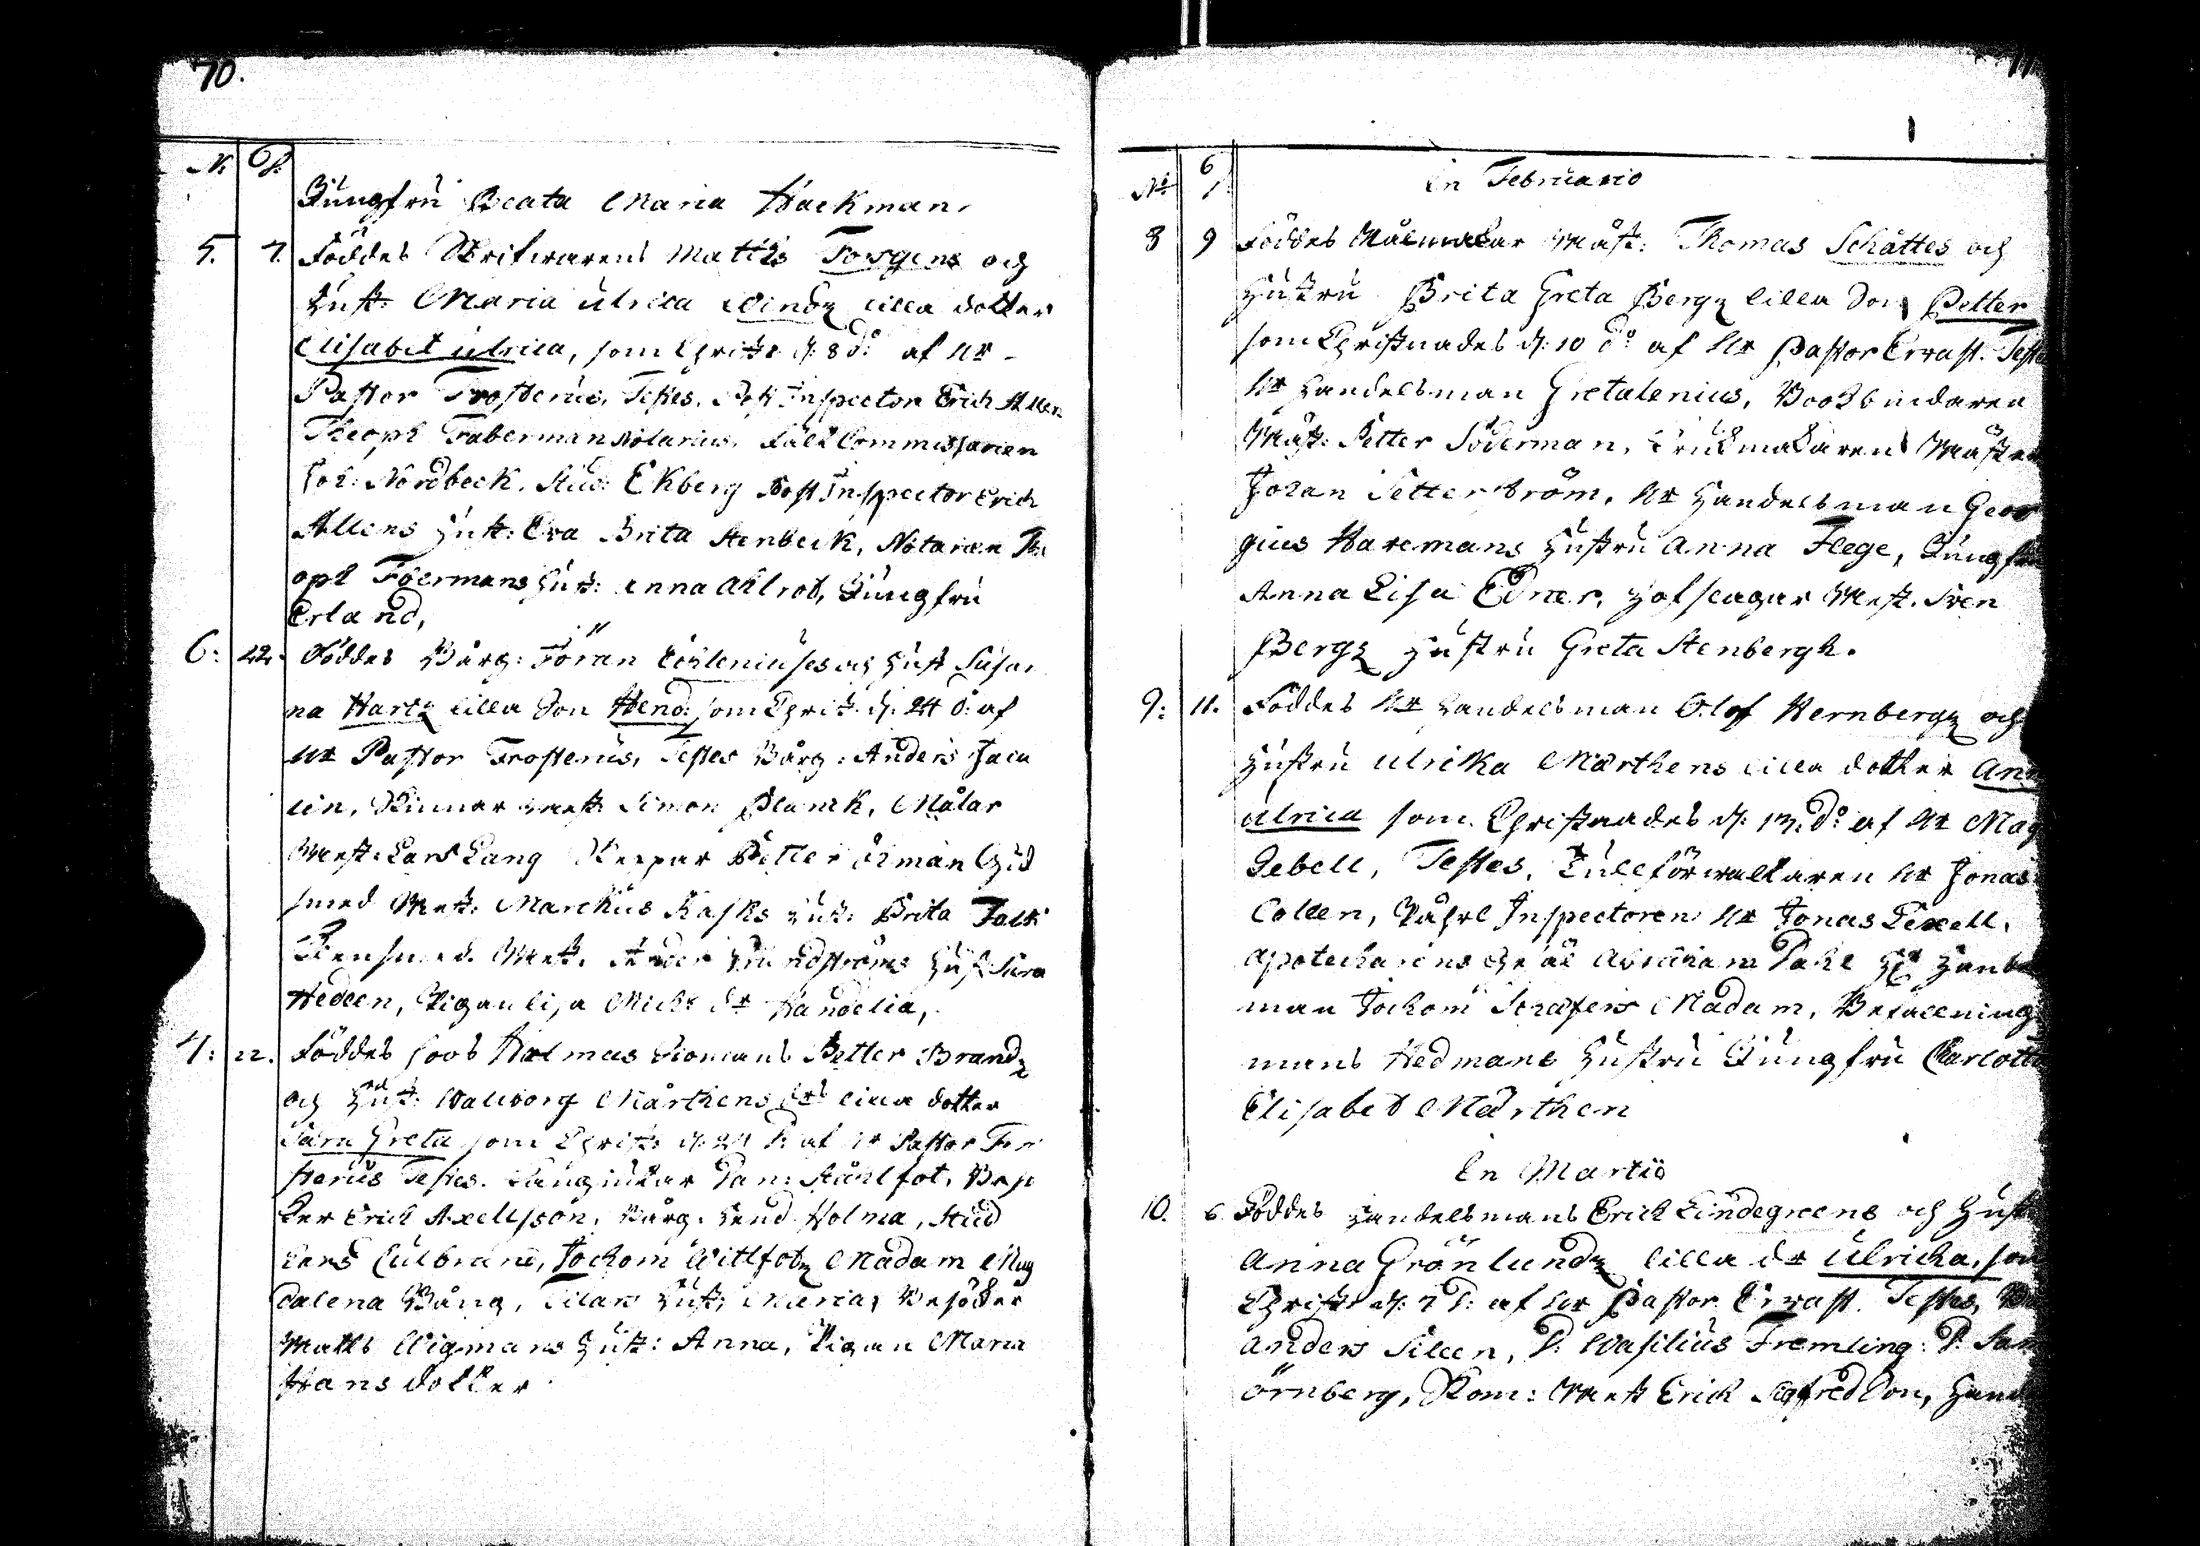 70.
N. 6/7.
Jungfru Beata Maria Hackman,
5. 7. Föddes Skrifwarens Matths Forsgens och
Hust: Maria Ulrica Windz lilla dotter
Elisabet Ulrica, som Christs d: 8 d:o af Hr
Pastor Frosterus, Testes. Post Inspector Erich Allen
Theoph Faberman Notarius. Fält Commissarien
Joh: Nordbeck. Stud: Ekberg Post Inspector Erich
Allens Hust: Eva Brita Stenbeck, Notarien The
oph Fabermans Hust: Anna Ahlrot, Jungfru
Erland,
6: 22. Föddes Bårg: Jöran och Hust Susan
na Hartz lilla Son Hend: som Christ. d: 24 d: af
Hr Pastor Frosterus, Testes Bårg: Anders Jacu
lin, Mest: Simon Planck, Målar
Mest: Lars Lang Petter Öman Guld
smed Mest: Marckus Hust: Brita Falk
Mest. Hust: Sara
Hedeen, Pigan Lisa Michs dr Handelia,
7: 22. Föddes hos Holmus Bonans Petter Brandz
och Hust: Walborg Mårthens drs lilla dotter
Sara Greta som Christs d: 24 d: af Hr Pastor Fro
sterus Testes. Dan: Ståhlfot, Besö
ker Erich Axellsson, Bårg. Hend Holma, Stud
Lars Culbrand, Jochom Wittfotz Madam Mag
dalena Bång, Hust: Maria, Besöker
Matts Wigmans Hust: Anna, Pigan Maria
Hansdotter.
71
N: 6/7
In Februario
8 9 Föddes Målmakar Måst: Thomas Schåttes och
Hustru Brita Greta Bergz lilla Son Petter
som Christnades d: 10 d:o af Hr Pastor Ervast. Teste
Hr Handelsman Gretalenius, Bookbindaren
Måst: Petter Söderman, Krukmakaren Måsten
Johan Setterström, Hr Handelsman Geor
gius Haremans Hustru Anna Flege, Jungfru
Anna Lisa Edner, Hofslagar Mest. Sven
Bergz Hustru Greta Stenbergh.
9: 11. Föddes Hr Handelsman Olof Hernbergz och
Hustru Ulrika Mårthens lilla dotter Ana
Ulrica som Christnades d: 13. d:o af Hr Mag
Gebell, Testes, Tullförwaltaren Hr Jonas
Collen, Inspectoren Hr Jonas Fexell,
Apothecarens Abraham Dahl Hr Hands
man Jochom Schæfers Madam, Befallning
mans Hedmans Hustru Jungfru Charlotta
Elisabet Mårthen
In Martio
10. 6 Föddes Handelsmans Erich Lindegreens och Hust
Anna Grönlundz lilla dr Ulricha, som
Christs d: 7 d: af Hr Pastor Ervast. Testes,
Anders Sileen, D: Wasilius Fremling: D: Sam
Örnberg, Skom: Mest Erick Sigfredson, Hand